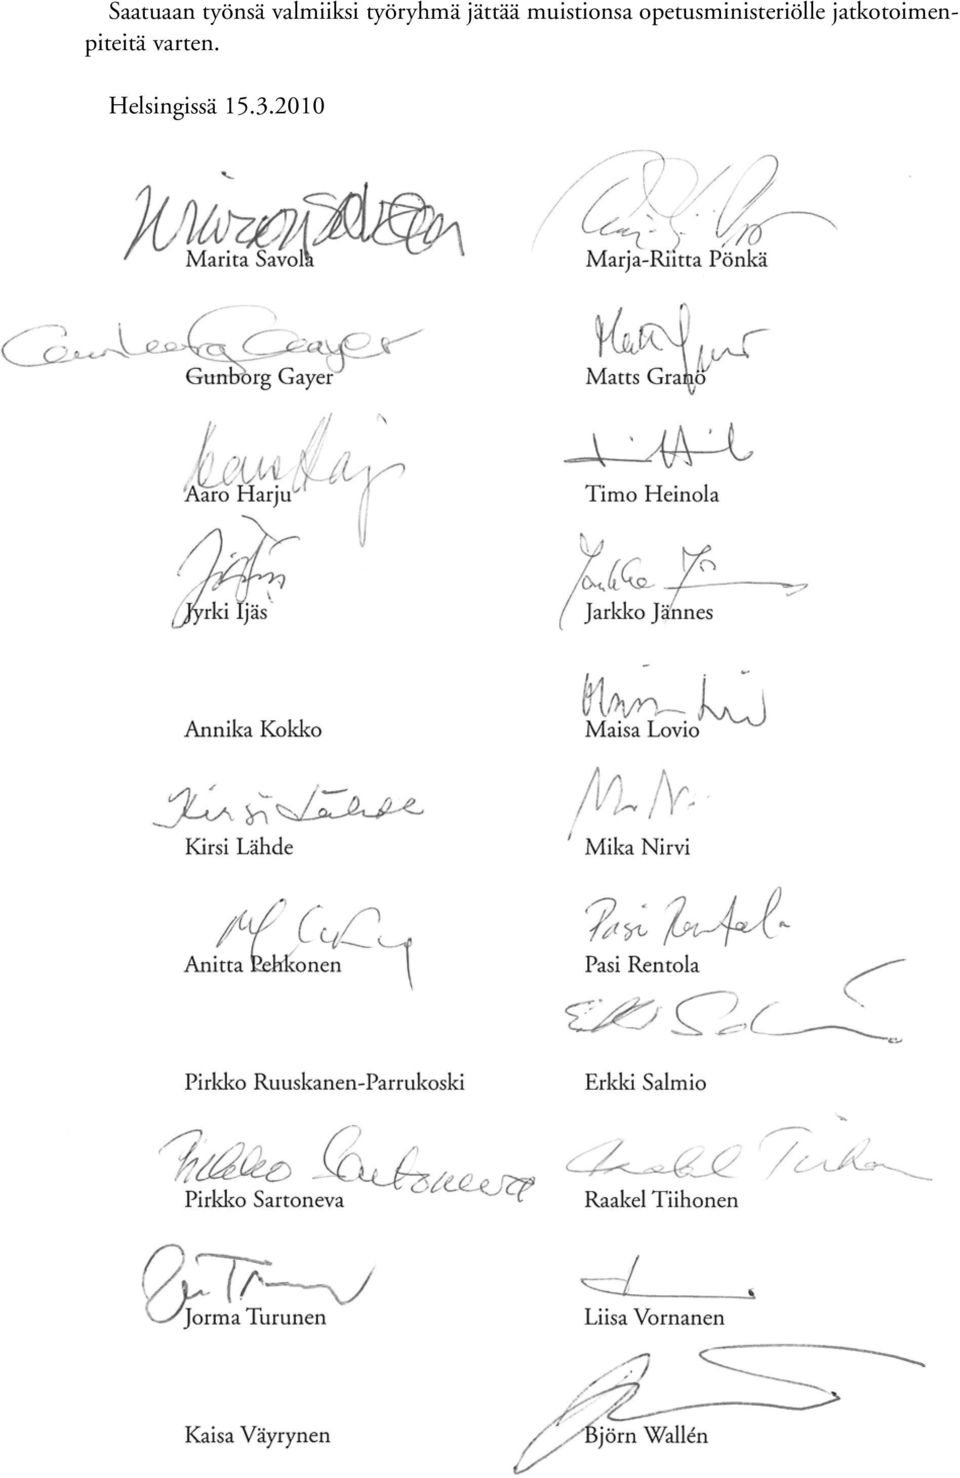 Saatuaan työnsä valmiiksi työryhmä jättää muistionsa opetusministeriölle jatkotoimen-
piteitä varten.
Helsingissä 15.3.2010
Marita Savola Marja-Riitta Pönkä
Gunborg Gayer Matts Granö
Aaro Harju Timo Heinola
Jyrki Ijäs Jarkko Jännes
Annika Kokko Maisa Lovio
Kirsi Lähde
Kirsi Lähde Mika Nirvi
Pasi Rentola
Anitta Pehkonen Pasi Rentola
Pirkko Ruuskanen-Parrukoski Erkki Salmio
Pirkko Sartoneva Raakel Tiihonen
Pirkko Sartoneva Raakel Tiihonen
Jorma Turunen Liisa Vornanen
Kaisa Väyrynen Björn Wallén